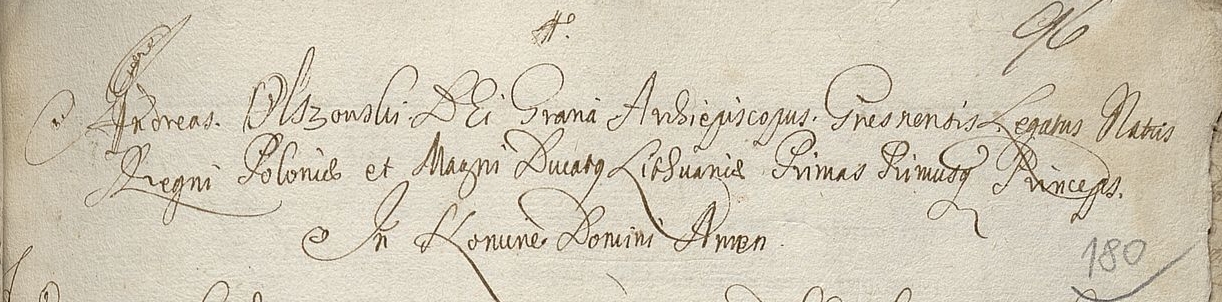 #.
96
Andreas. Olszouski. DEi Grana Archiepiscopus. Gnesnensis Legatus Natus
Regni Poloniæ et Magni Ducatq Lithuaniæ Primas Primusq Princeps.
In Nomine Domini Amen.
180